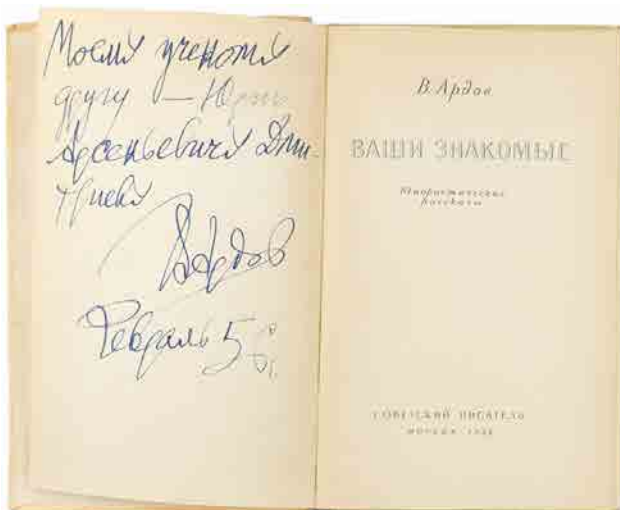 Моему ученому
другу — Юрию
Арсеньевичу Дми-
триеву
ВАрдов
Февраль 5
В. Ардов
ВАШИ ЗНАКОМЫЕ
Юмористические
рассказы
СОВЕТСКИЙ ПИСАТЕЛЬ
МОСКВА